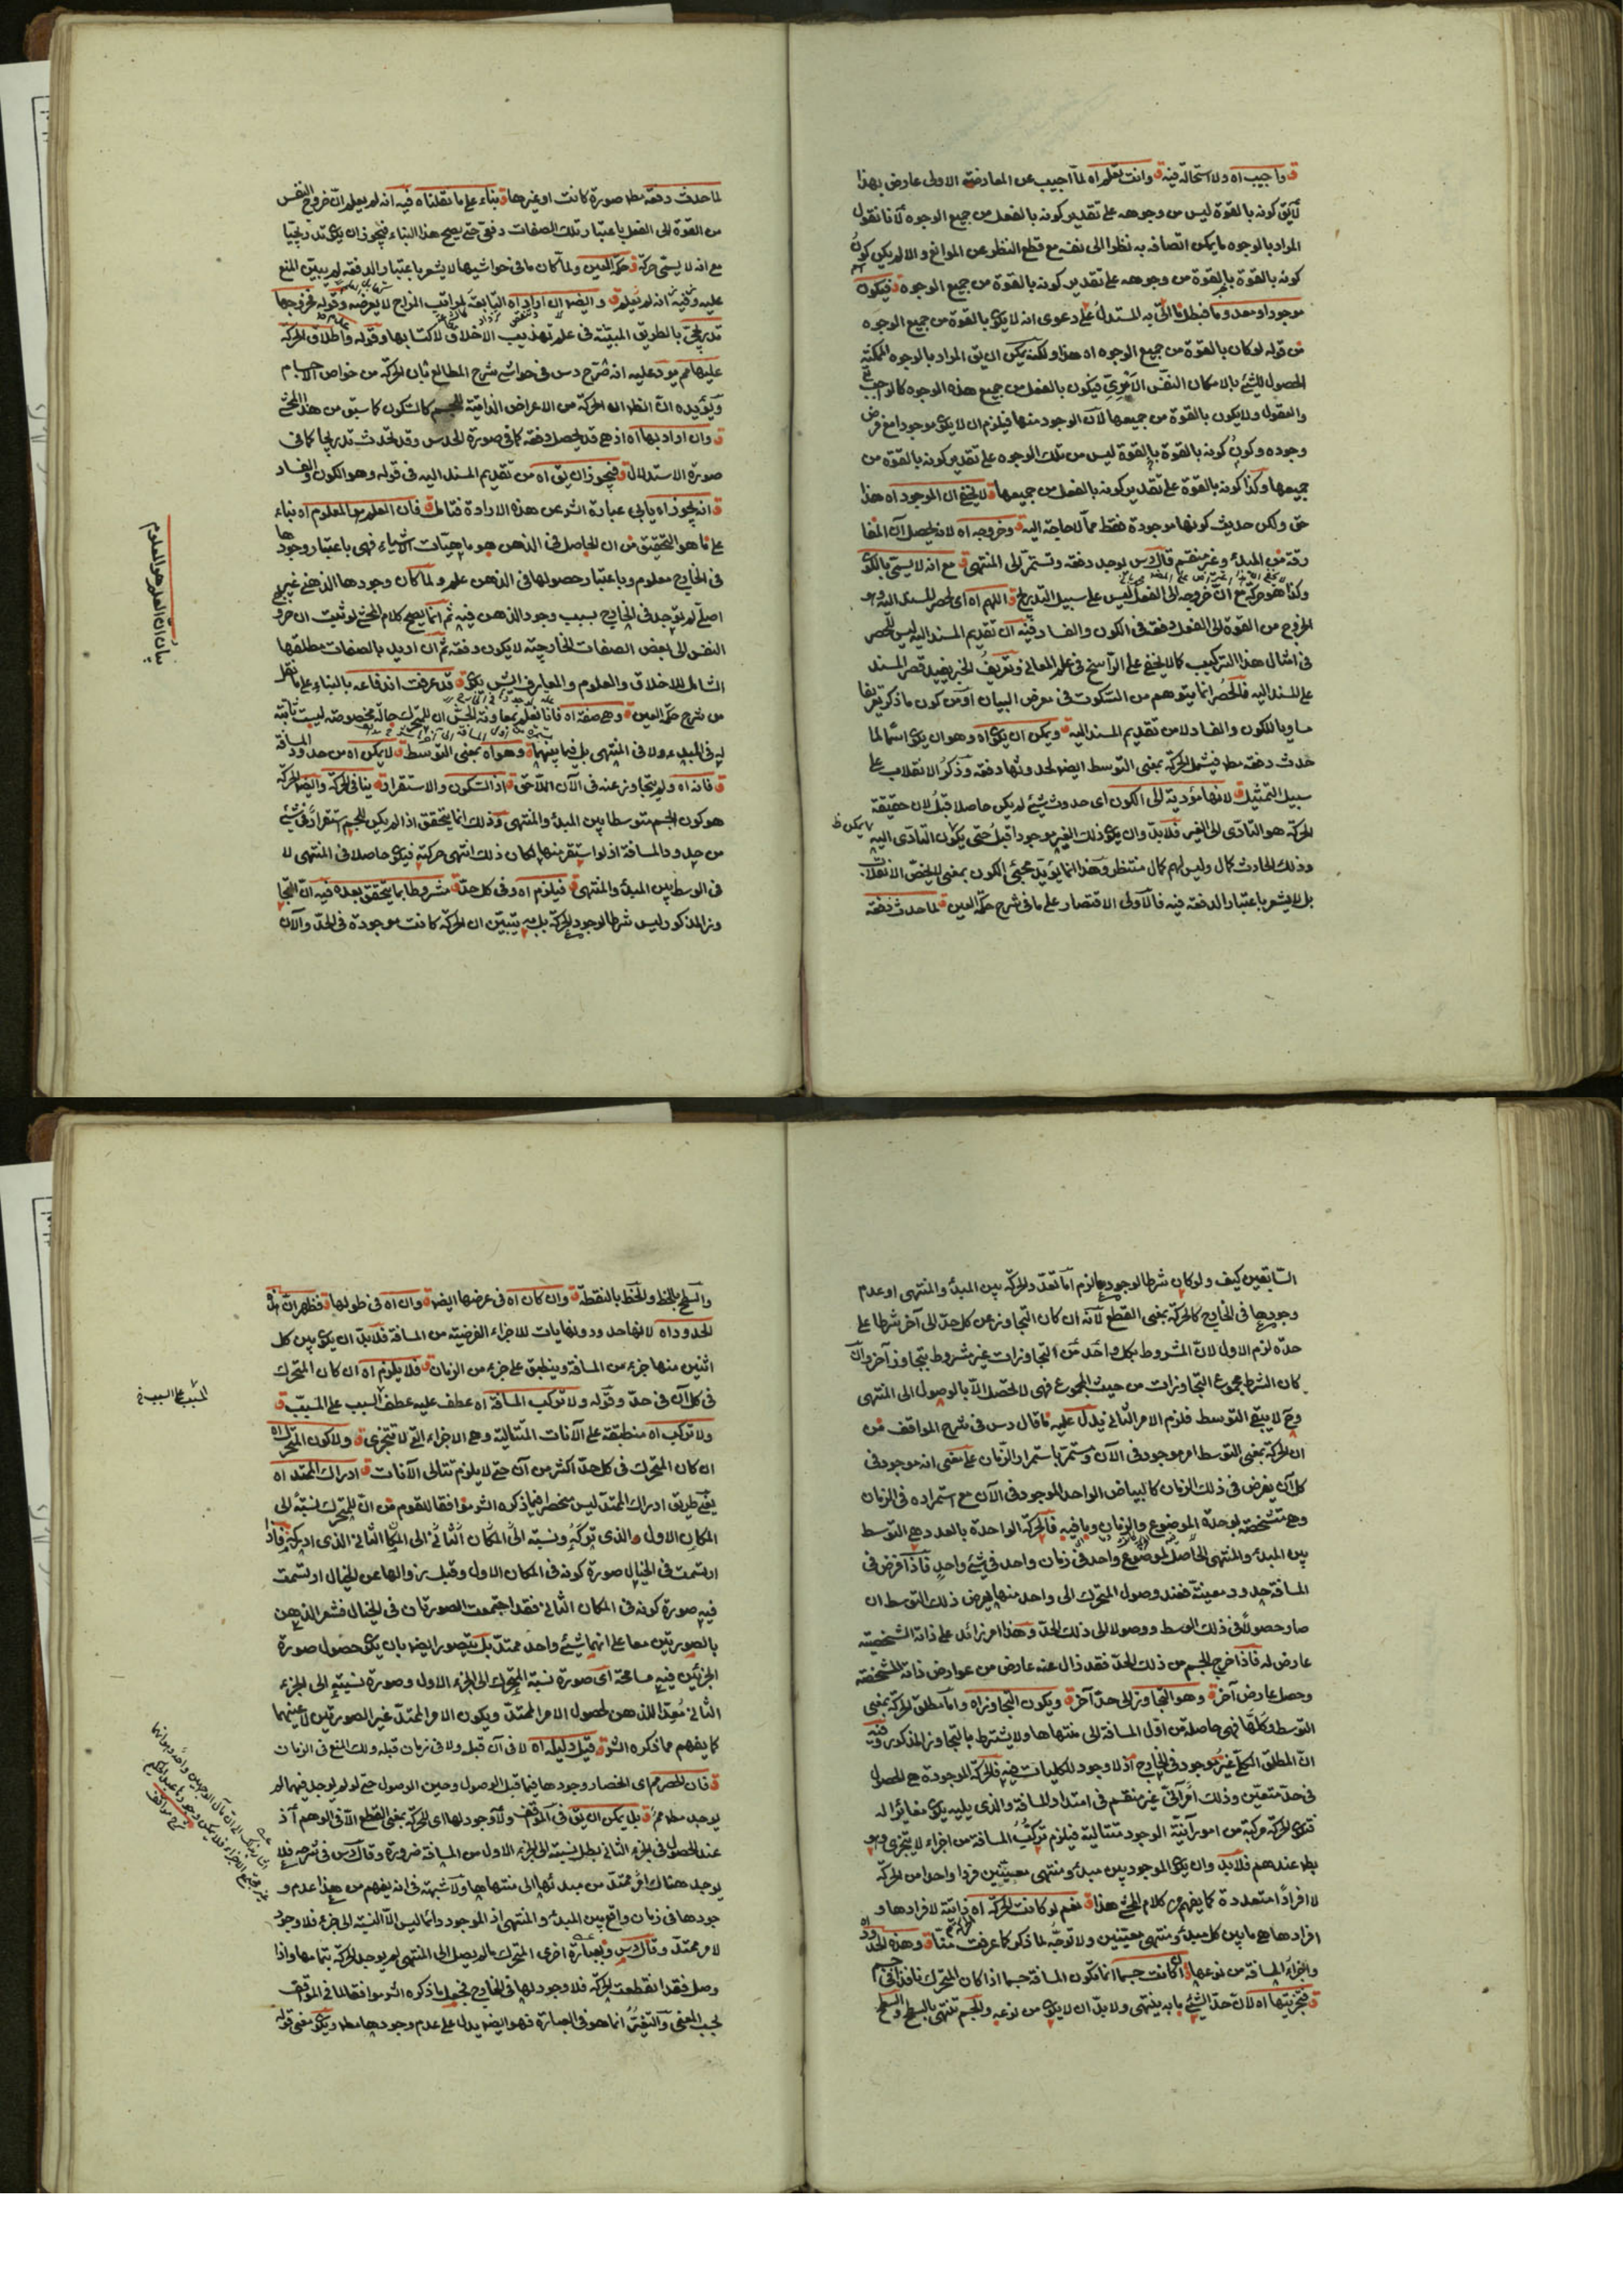 واجيب اه ولا استحالة فيه ق وانت تعلم اه لما اجيب عن المعارضة الاولى عارض بهذا
لا يق كونه بالقوة ليس من وجوهه على تقدير كونه بالفعل من جميع الوجوه لانا نقول
المراد بالوجوه ما يمكن اتصافه به نظرا الى نفسه مع قطع النظر عن الموانع والا لم يكن كون
كونه بالقوة بالقوة من وجوهه على تقدير كونه بالقوة من جميع الوجوه ق فيكون
موجودا ومعدوما على دعوى انه لا يكون بالقوة من جميع الوجوه
من قوله لو كان بالقوة من جميع الوجوه اه هذا ولكن يمكن ان يق المراد بالوجوه الممكنة
الحصول للشئ بالامكان النفس الامري فيكون بالفعل من جميع هذه الوجوه كالواجب تع
والعقول ولا يكون بالقوة من جميعها لان الوجود منها فيلزم ان لا يكون موجودا مع فرض
وجوده وكون كونه بالقوة بالقوة ليس من تلك الوجوه على تقدير كونه بالقوة من
جميعها وكذا كونه بالقوة على تقدير كونه بالفعل من جميعها ق لا يخفى ان الموجود اه هذا
حق ولكن حديث كونها موجودة فقط مما لا حاجة اليه ق وخروجه اه لانه يحصل ان المفا
رقة من المبدء وغير منقسم قال س يوجد دفعة وتستمر الى المنتهى ق مع انه لا يسمى بالكون
وكذا هو حركة مع ان خروجه الى الفعل ليس على سبيل التدريج ق اللهم اه اى لحصر المسند اليه وهو
الخروج من القوة الى الفعل دفعة في الكون والفساد وفيه ان تقديم المسند اليه ليس للحصر
في امثال هذا التركيب كما لا يخفى على الراسخ في علم المعاني وتعريف الخبر يفيد قصر المسند
على المسند اليه فالحصر انما يتوهم من السكوت في معرض البيان او من كون ما ذكر تعريفا
مساويا للكون والفساد لا من تقديم المسند اليه ق ويمكن ان يكون اه وهو ان يكون اسما لما
حدث دفعة مط فيشمل الحركة بمعنى التوسط ايضا لحدوثها دفعة وذكر الانقلاب على
سبيل التمثيل ق لانها مؤدية الى الكون اى حدوث شئ لم يكن حاصلا قبل لان حقيقة
الحركة هو التادى الى الغير فلا بد وان يكون ذلك الغير موجودا قبل حتى يكون التادى اليه
وذلك الحادث كمال وليس لهم كمال منتظر وهذا انما يؤيد مجئ الكون بمعنى لا يخص الانقلاب
بل لا يشعر باعتبار الدفعة فيه فالاولى الاقتصار على ما في شرح حكمة العين ق لما حدث دفعة
لما حدث دفعة مط صورة كانت او غيرها ق بناء على ما نقلناه فيه انه لم يعلم ان خروج النفس
من القوة الى الفعل باعتبار تلك الصفات دفعى حتى يصح هذا البناء فيجوز ان يكون تدريجيا
مع انه لا يسمى حركة ق حكمة العين ولما كان ما في حواشيها لا يشعر باعتبار الدفعة لم يبين المنع
عليه وفيه انه لم يعلم ق وايضا ان اراد اه التابعة لمراتب المزاج لا يعرضه وقوله فخروجها
تدريجى بالطريق المبينة في علم تهذيب الاخلاق لاكتسابها وقوله واطلاق الحركة
عليها مم يرد عليه انه صرح س في حواشى شرح المطالع بان الحركة من خواص الاجسام
ويؤيده ان الظ ان الحركة من الاعراض الذاتية للجسم كالسكون كما سبق من هذا المحشى
ق وان اراد بها اه اذ هى قد يحصل دفعة كما في صورة الحدس وقد تحدث تدريجا كما في
صورة الاستدلال ق فيجوز ان يق اه من تقديم المسند اليه في قوله وهو الكون والفساد
ق انه يجوز اه يابى عبارة الشر عن هذه الارادة فتامل ق فان العلم هو المعلوم اه بناء
على ما هو التحقيق من ان الحاصل في الذهن هو ماهيات الاشياء فهى باعتبار وجودها
في الخارج معلوم وباعتبار حصولها في الذهن علم ولما كان وجودها الذهني غير
اصلى لم توجد في الخارج بسبب وجود الذهن فيه ثم انما يصح كلام المحشى لو ثبت ان خروج
النفس الى بعض الصفات الخارجية لا يكون دفعة ثم ان اريد بالصفات مطلقها
الشامل للاخلاق والعلوم والمعارف ق قد عرفت اندفاعه بالبناء على ما نقل
من شرح حكمة العين ق وهى صفة اه فانا نعلم بمعاونة الحس ان للمتحرك حالة مخصوصة ليست ثابتة
له في المبدء ولا في المنتهى بل فيما بينهما ق وهو اه بمعنى التوسط ق لا يمكن اه من حدود المسافة
ق فانه اه ولم يتجاوز عنه في الآن اللاحق ق اذ السكون والاستقرار ق ينافى الحركة وايضا الحركة
هو كون الجسم متوسطا بين المبدء والمنتهى وذلك انما يتحقق اذا لم يكن للجسم استقرار في شئ
من حدود المسافة اذ لو استقر منها لكان ذلك انتهى حركته فيكون حاصلا في المنتهى لا
في الوسط بين المبدء والمنتهى ق فيلزم اه وفي كل حد ق مشروطا بما يتحقق بعده فيه ان التجا
وز المذكور ليس شرطا لوجود الحركة بل به يتبين ان الحركة كانت موجودة في الحد والآن
بيان ان العلم هو المعلوم
السابقين كيف ولو كان شرطا لوجودها لزم اما تعدد الحركة بين المبدء والمنتهى او عدم
وجودها في الخارج كالحركة بمعنى القطع لانه ان كان التجاوز عن كل حد الى آخر شرطا على
حدة لزم الاول لان المشروط بكل واحد من التجاوزات غير مشروط بتجاوز آخر وان
كان الشرط مجموع التجاوزات من حيث المجموع فهى لا تحصل الا بالوصول الى المنتهى
وح لا يبقى التوسط فلزم الامر الثاني يدل عليه ما قال س في شرح المواقف من
ان الحركة بمعنى التوسط امر موجود في الآن ومستمر باستمرار الزمان على معنى انه موجود في
كل آن يفرض في ذلك الزمان كالبياض الواحد الموجود في الآن مع استمراره في الزمان
وهى متشخصة بوحدة الموضوع والزمان وما فيه فالحركة الواحدة بالعدد هى التوسط
بين المبدء والمنتهى الحاصل لموضوع واحد في زمان واحد في شئ واحد فاذا فرض في
المسافة حدود معينة فعند وصول المتحرك الى واحد منها يعرض ذلك التوسط ان
صار حصولا في ذلك الوسط ووصولا الى ذلك الحد وهذا امر زائد على ذاته الشخصية
عارض له فاذا خرج الجسم من ذلك الحد فقد زال عنه عارض من عوارض ذاته المشخصة
وحصل عارض آخر ق وهو التجاوز الى حد آخر ق ويكون التجاوز اه واما مطلق الحركة بمعنى
التوسط وكليها فهى حاصلة من اول المسافة الى منتهاها ولا يشترط بالتجاوز المذكور وفيه
ان المطلق الكلى غير موجود في الخارج اذ لا وجود للكليات فيه فالحركة الموجودة هى الحصول
في حد متعين وذلك امر آنى غير منقسم في امتداد المسافة والذى يليه يكون مغايرا له
فتكون الحركة مركبة من امور آنية الوجود متتالية فيلزم تركب المسافة من اجزاء لا يتجزى وهو
بط عندهم فلا بد وان يكون الموجود بين مبدء ومنتهى معينين فردا واحدا من الحركة
لا افرادا متعددة كما يفهم من كلام المحشى هذا ق نعم لو كانت الحركة اه ذاتية لافرادها و
افرادها هى ما بين كل مبدء ومنتهى معينين ولا توجه لما ذكر كما عرفت منا ق وهذه الحدود اه
واجزاء المسافة من نوعها اى كانت جسما انما تكون المسافة جسما اذا كان المتحرك نافذا في جسم
ق فتجزيتها اه لان حد الشئ ما به ينتهى ولا بد ان لا يكون من نوعه والجسم تنتهى بالسطح والسطح
والسطح بالخط والخط بالنقطة ق وان كان اه في عرضها ايضا ق وان اه في طولها ق فظهر ان
الحدود اه لانها حدود ونهايات للاجزاء الفرضية من المسافة فلا بد ان يكون بين كل
اثنين منها جزء من المسافة وينطبق على جزء من الزمان ق فلا يلزم اه ان كان المتحرك
في كل آن في حد وقوله ولا تركب المسافة اه عطف عليه عطف السبب على المسبب ق
ولا تركب اه منطبقة على الآنات المتتالية وهى الاجزاء التى لا تتجزى ق ولا كون المتحرك اه
ان كان المتحرك في كل حد اكثر من آن حتى لا يلزم تتالى الآنات ق ادراك الممتد اه
يعنى طريق ادراك الممتد ليس منحصرا فيما ذكره الشر موافقا للقوم من ان للمتحرك نسبة الى
المكان الاول الذى تركه ونسبة الى المكان الثاني الى المكان الثاني الذى ادركه فاذا
ارتسمت في الخيال صورة كونه في المكان الاول وقبل زوالها عن الخيال ارتسمت
فيه صورة كونه في المكان الثاني فقد اجتمعت الصورتان في الخيال فشعر الذهن
بالصورتين معا على انهما شئ واحد ممتد بل يتصور ايضا بان يكون حصول صورة
الجزئين فيه مسامحة اى صورة نسبة المتحرك الى الجزء الاول وصورة نسبته الى الجزء
الثاني معدا للذهن لحصول الامر الممتد ويكون الامر الممتد غير الصورتين لا عينهما
كما يفهم مما ذكره الشر ق قيل دليله اه لا في آن قبله ولا في زمان قبله ولك المنع في الزمان
ق فان الحصر مم اى انحصار وجودها فيما قبل الوصول وحين الوصول حتى لو لم يوجد فيهما لم
يوجد مط مم ق بل يمكن ان يق في المواقف ولا وجود لها اى للحركة بمعنى القطع الا في الوهم اذ
عند الحصول في الجزء الثاني بطل نسبته الى الجزء الاول من المسافة ضرورة وقال س في شرحه فلا
يوجد هناك امر ممتد من مبدئها الى منتهاها ولا شبهة في انه يفهم من هذا عدم و
جودها في زمان واقع بين المبدء والمنتهى اذ الموجود دائما ليس الا النسبة الى جزء فلا وجود
لامر ممتد وقال س وبعبارة اخرى المتحرك ما لم يصل الى المنتهى لم يوجد الحركة بتمامها واذا
وصل فقد انقطعت الحركة فلا وجود لها في الخارج فجعل ما ذكره الشر موافقا لما في المواقف
بحسب المعنى والتغير انما هو في العبارة فهو ايضا يدل على عدم وجودها مط ويكون معنى قوله
المسبب على السبب